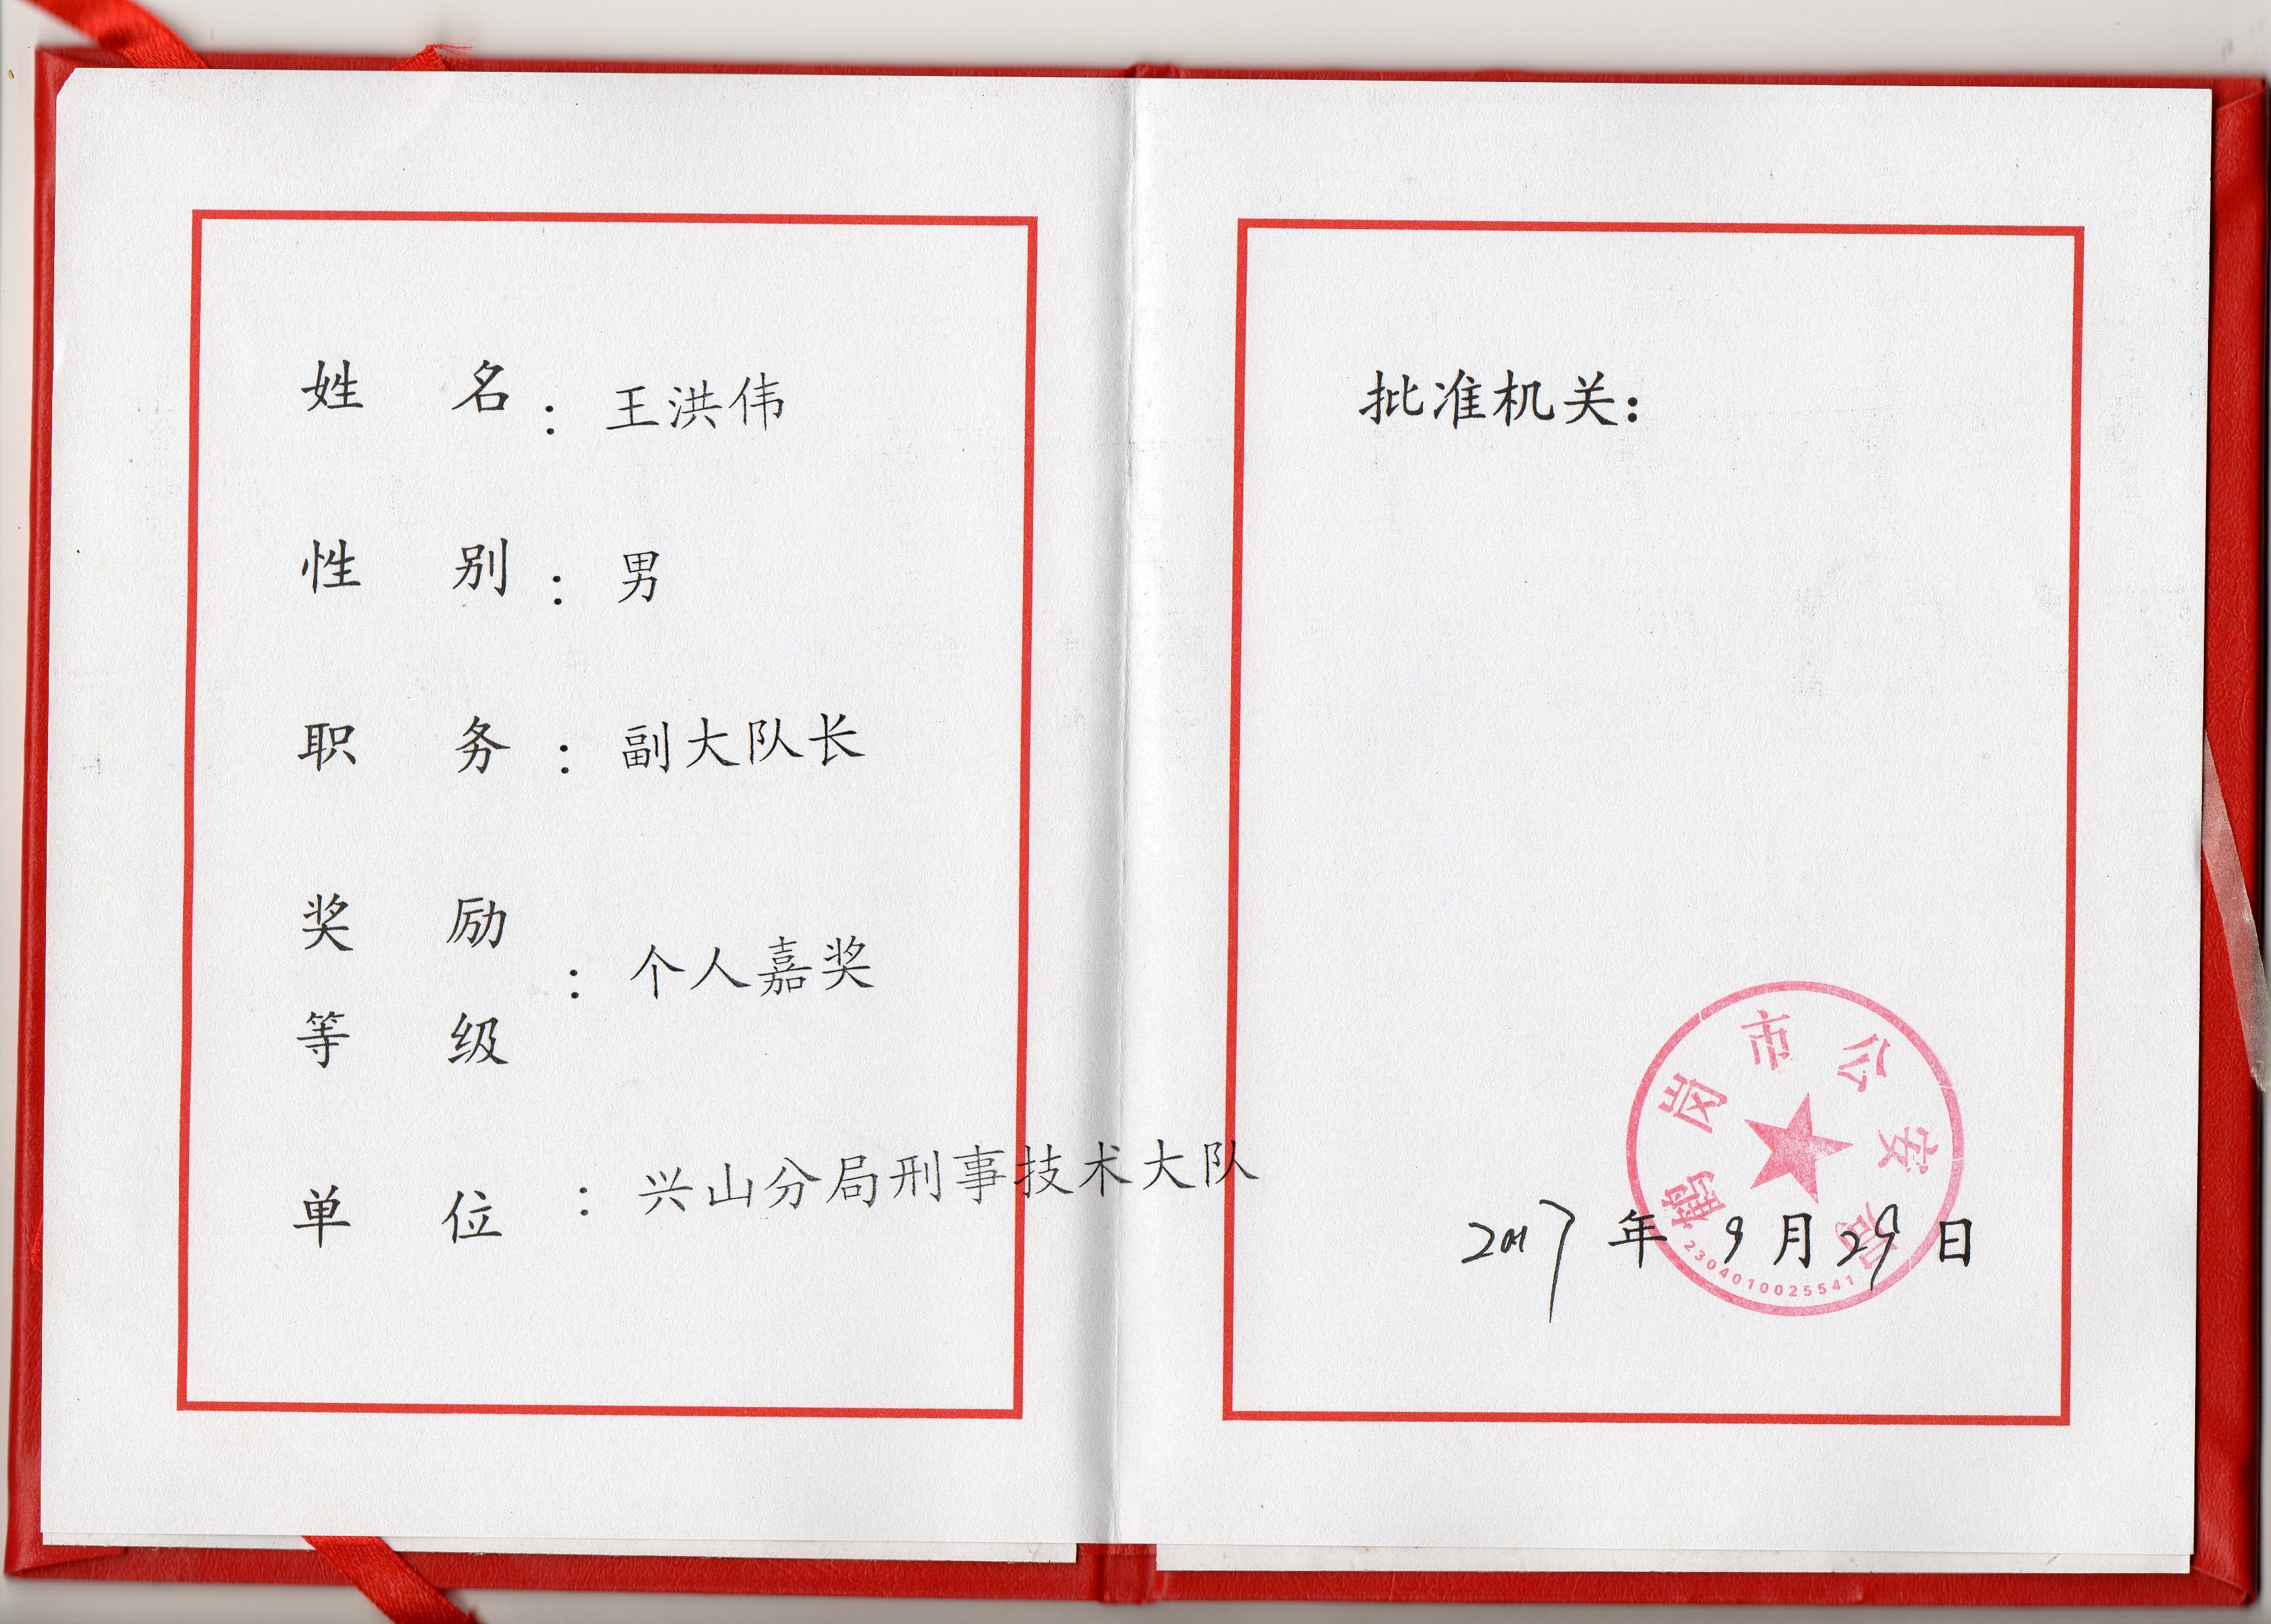 姓 名：王洪伟
性 别：男
职 务：副大队长
奖 励
等 级：个人嘉奖
单 位：兴山分局刑事技术大队
批准机关：
鹤岗市公安局
2304010025541
2017年9月29日